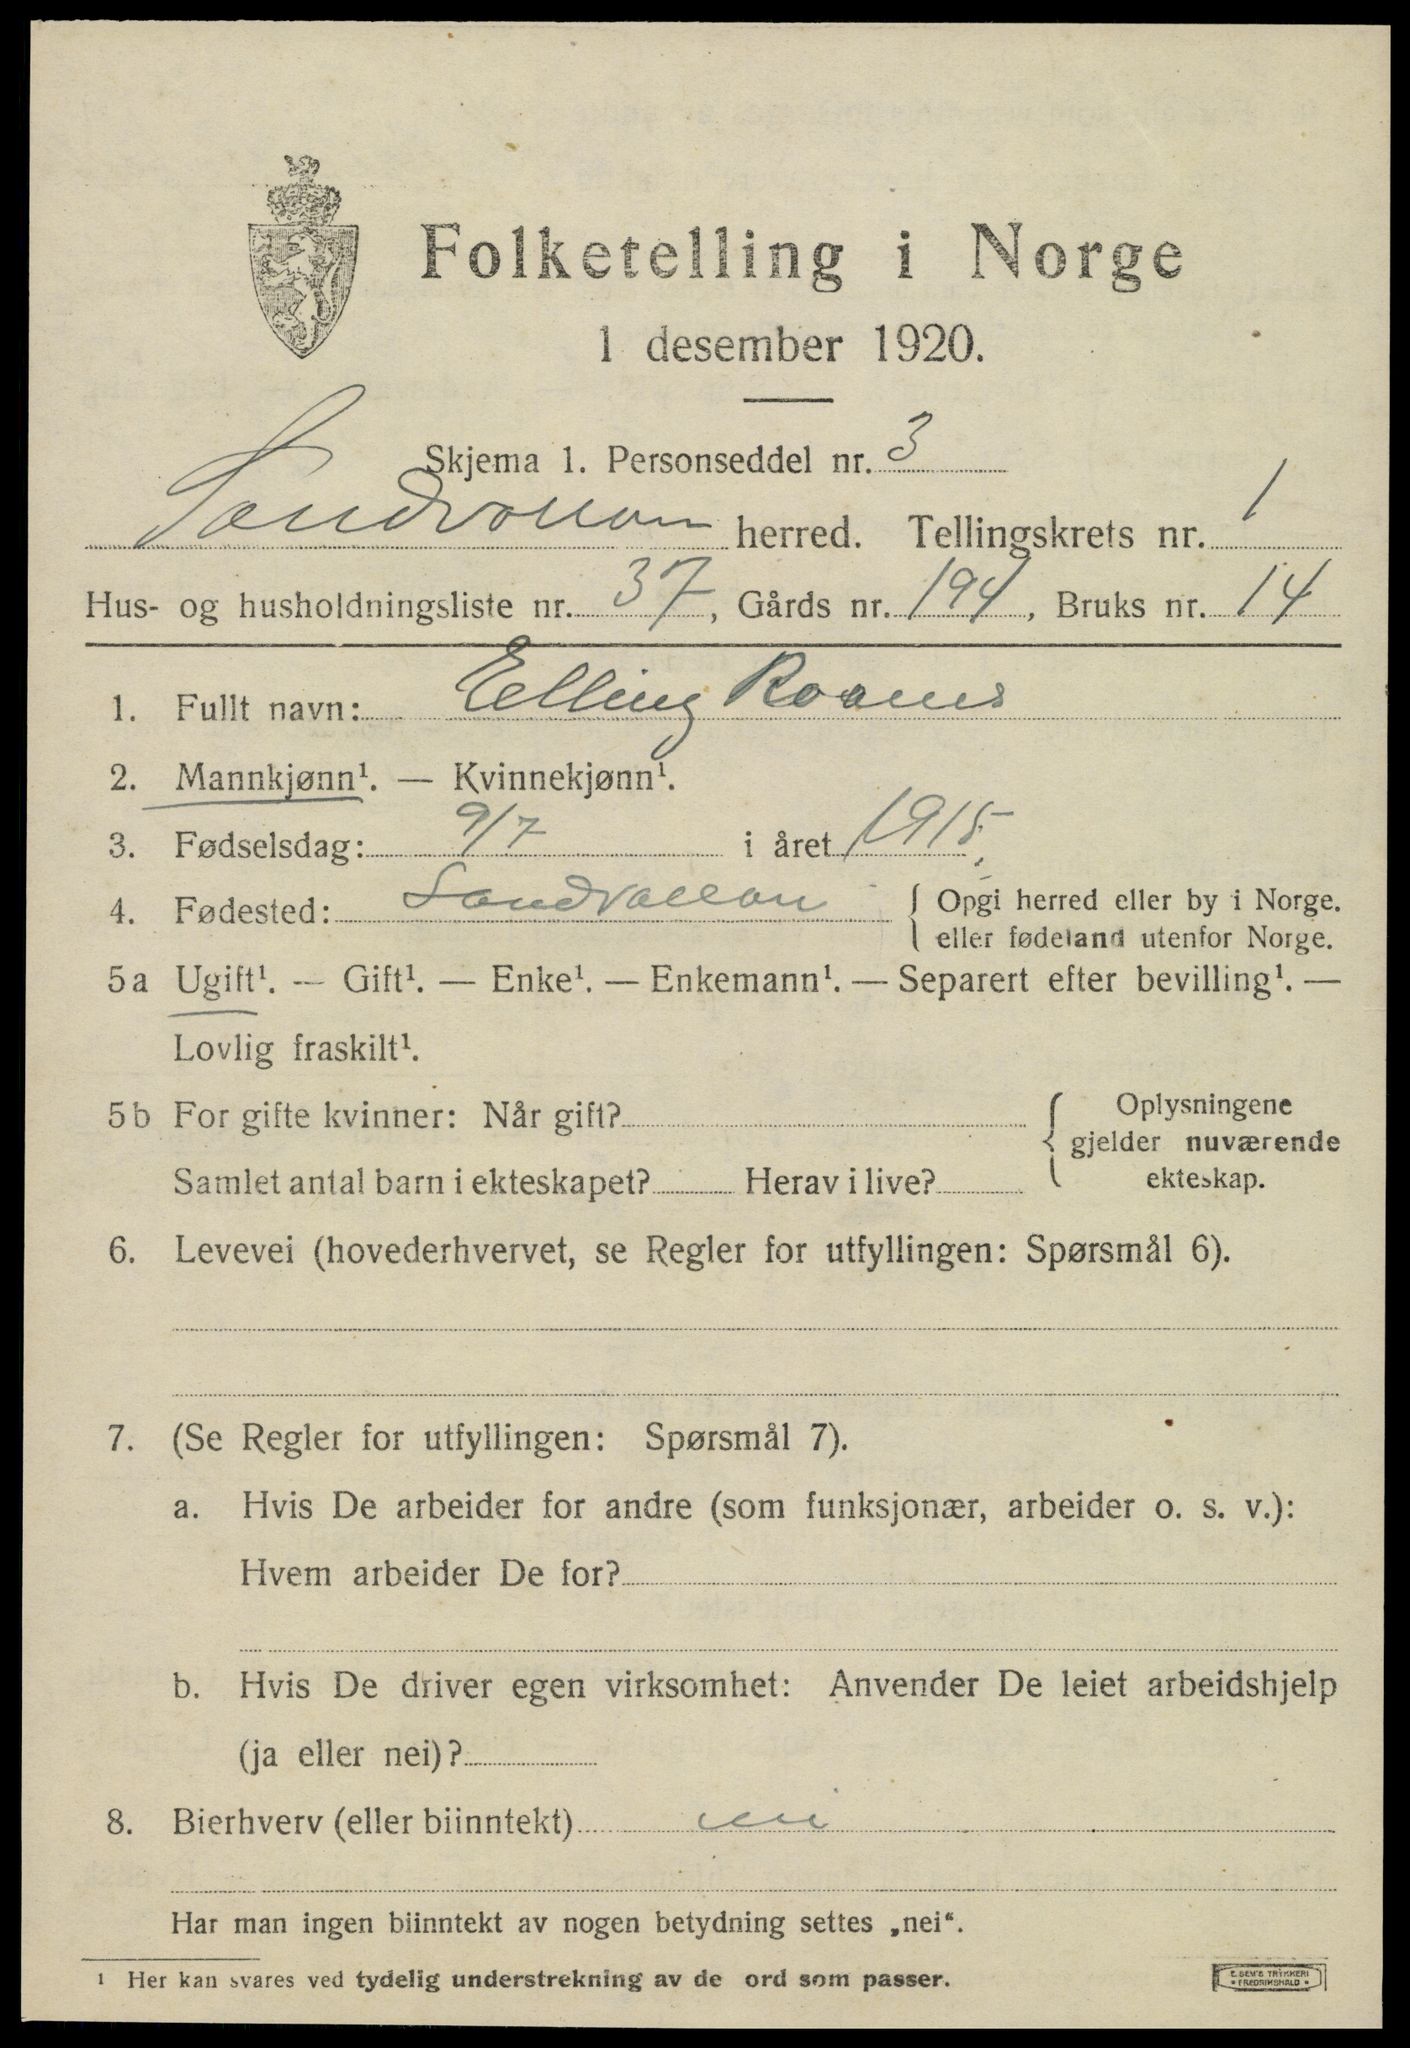 Folketelling i Norge
1 desember 1920.
Skjema 1. Personseddel nr. 3
Sandvollan herred. Tellingskrets nr. 1
Hus- og husholdningsliste nr. 37, Gårds nr. 194, Bruks nr. 14
1. Fullt navn: Elling
2. Mannkjønn¹. — Kvinnekjønn¹.
3. Fødselsdag: 9/7 i året 1915.
4. Fødested: Sandvollan { Opgi herred eller by i Norge.
eller fødeland utenfor Norge.
5a Ugift¹. — Gift¹. — Enke¹. — Enkemann¹. — Separert efter bevilling¹. —
Lovlig fraskilt¹.
5b For gifte kvinner: Når gift?
Samlet antal barn i ekteskapet? Herav i live?
{ Oplysningene
gjelder nuværende
ekteskap.
6. Levevei (hovederhvervet, se Regler for utfyllingen: Spørsmål 6).
7. (Se Regler for utfyllingen: Spørsmål 7).
a. Hvis De arbeider for andre (som funksjonær, arbeider o. s. v.):
Hvem arbeider De for?
b. Hvis De driver egen virksomhet: Anvender De leiet arbeidshjelp
(ja eller nei)?
8. Bierhverv (eller biinntekt) nei
Har man ingen biinntekt av nogen betydning settes „nei“.
¹ Her kan svares ved tydelig understrekning av de ord som passer.
E. SEM'S TRYKKERI
• FREDRIKSHALD •